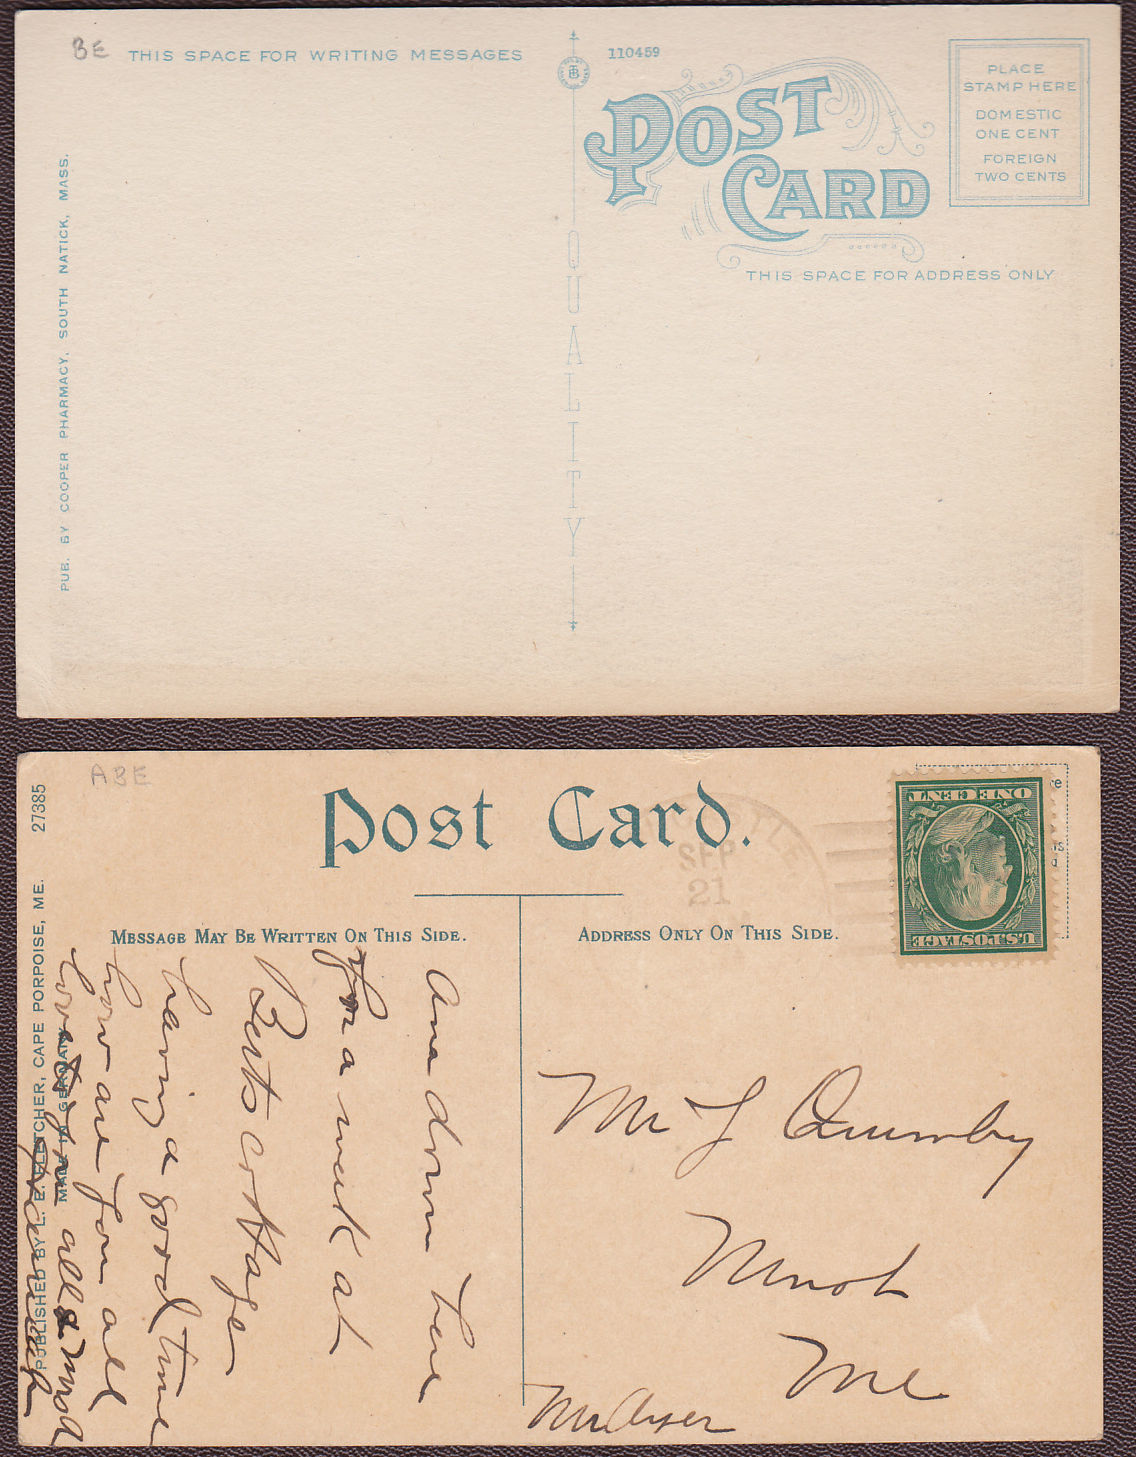 BE
THIS SPACE FOR WRITING MESSAGES
110459
POST
CARD
PLACE
STAMP HERE
DOMESTIC
ONE CENT
FOREIGN
TWO CENTS
THIS SPACE FOR ADDRESS ONLY
QUALITY
PUB. BY COOPER PHARMACY, SOUTH NATICK, MASS.
ABE
Post Card.
SEP
21
ONE CENT
U.S. POSTAGE
MESSAGE MAY BE WRITTEN ON THIS SIDE.
ADDRESS ONLY ON THIS SIDE.
27385
PUBLISHED BY L. E. FLETCHER, CAPE PORPOISE, ME.
MADE IN GERMANY
Am down here
for a week at
Berts cottage
having a good time
how are you all
love to you all
Mr J Quimby
Minot
Me